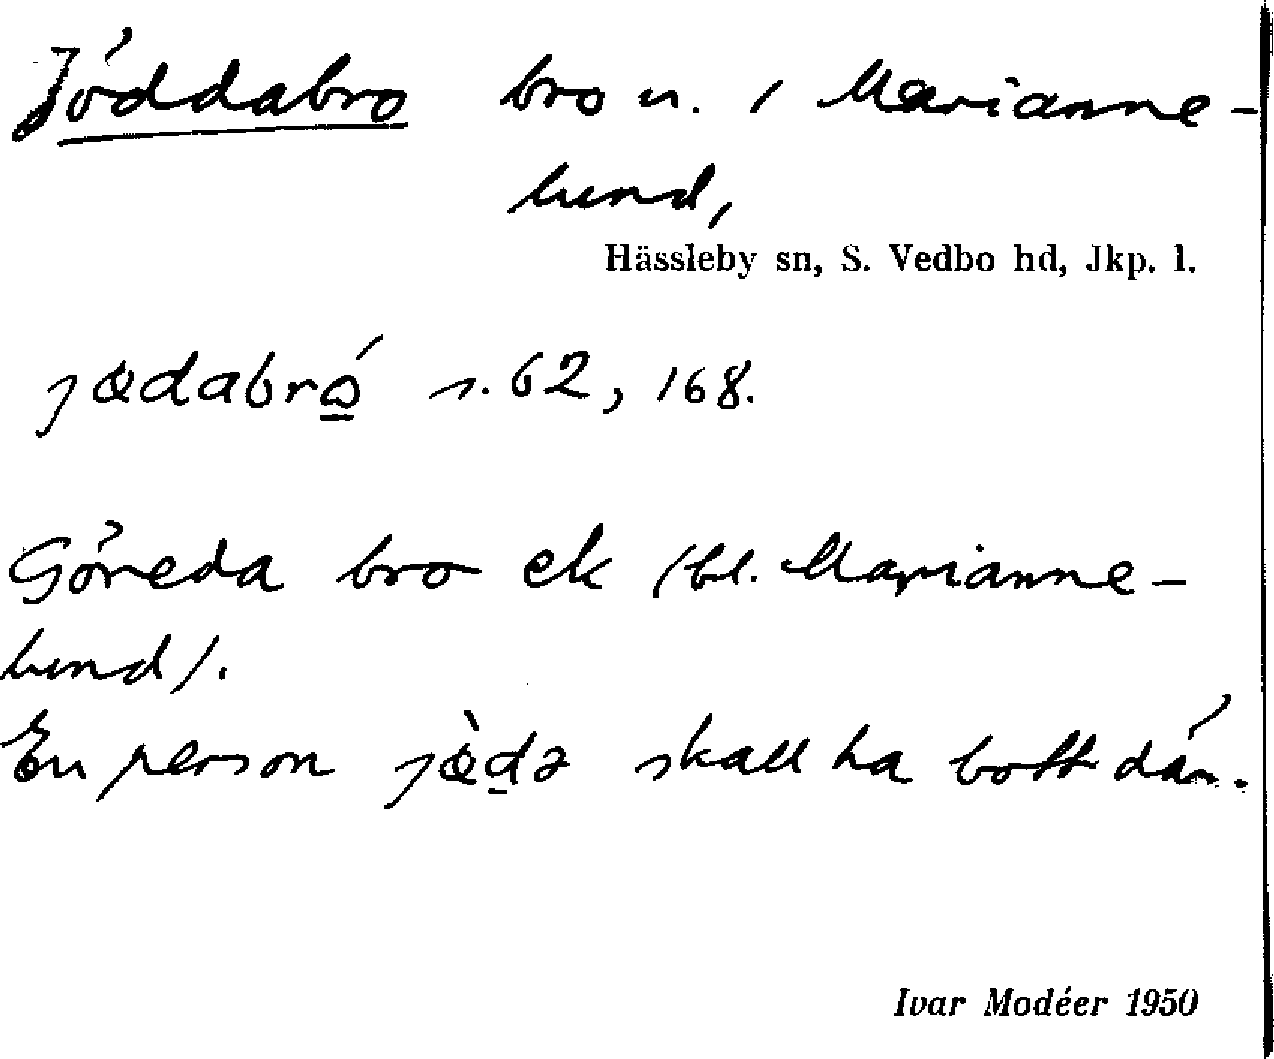 Jöddabro bro n. i Marianne-
lund,
Hässleby sn, S. Vedbo hd, Jkp. l.
jødabró s. 62, 168.
Göreda bro ek (bl. Marianne-
lund).
En person jø̀də skall ha bott där.
Ivar Modéer 1950